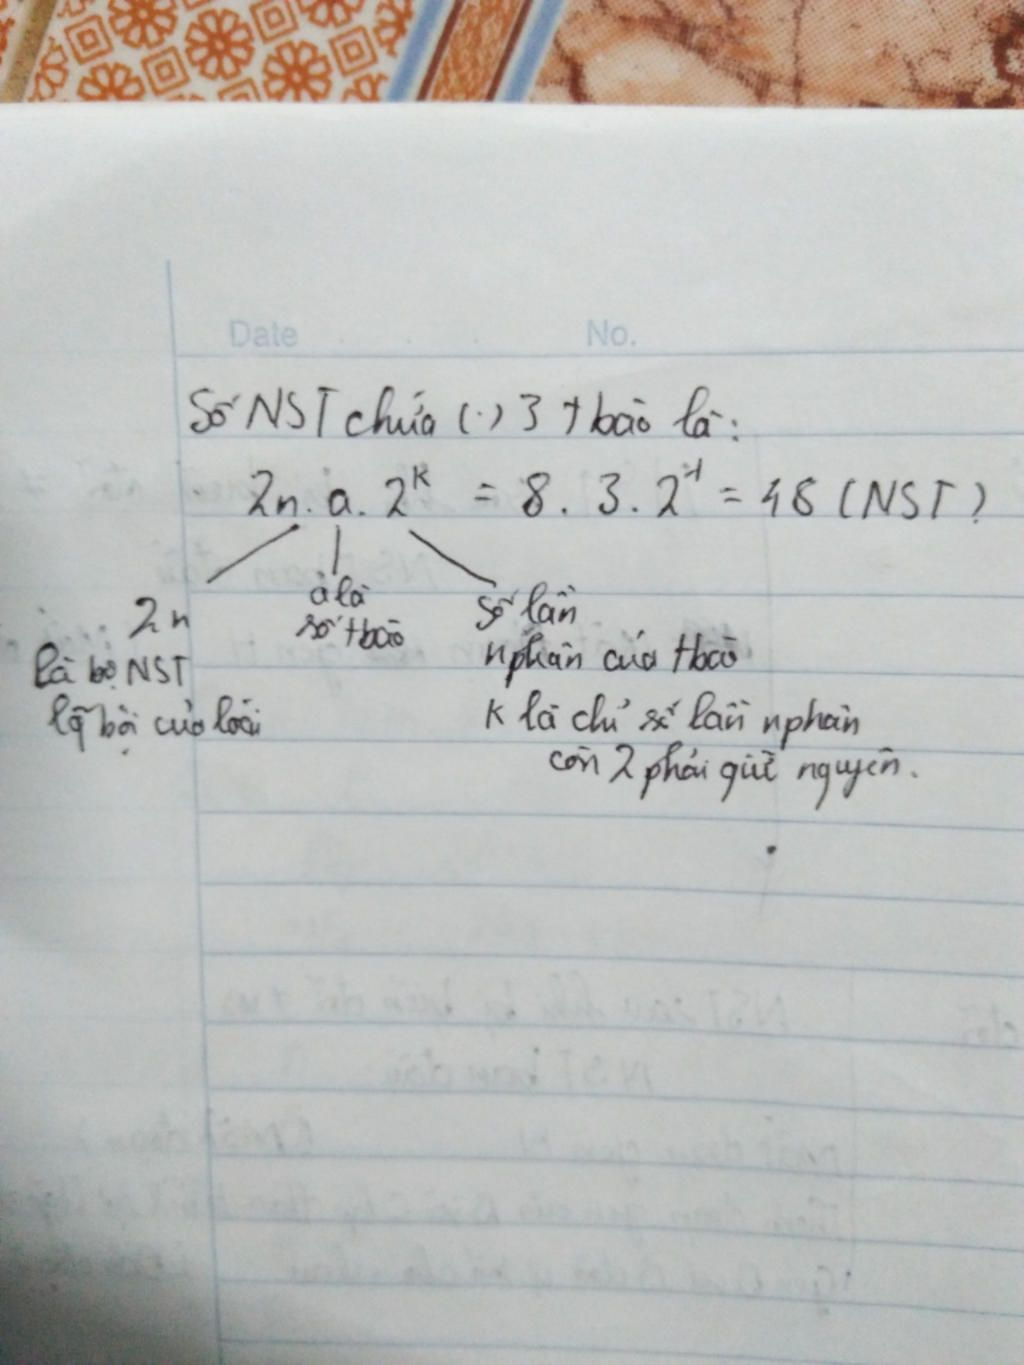 Date No.
Số NST chứa (.) 3 tbào là:
2n. a. 2^k = 8. 3. 2^1 = 48 (NST)
2n
là bộ NST
lg bội của loài
a là
số tbào
số lần
nphân của tbào
K là chỉ số lần nphân
còn 2 phải giữ nguyên.